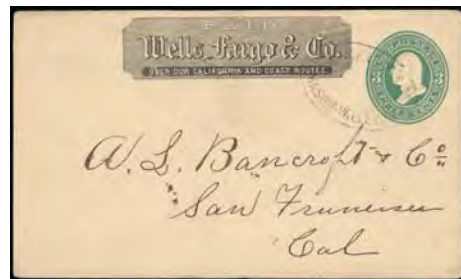 PAID
Wells, Fargo & Co.
OVER OUR CALIFORNIA AND COAST ROUTES.
U.S. POSTAGE
3 3
THREE CENTS
A. L. Bancroft & Co
San Francisco
Cal